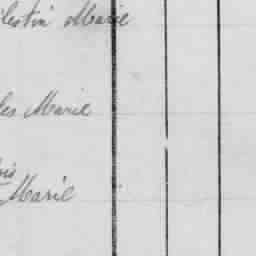 lestin Marie
les Marie
ois
Marie